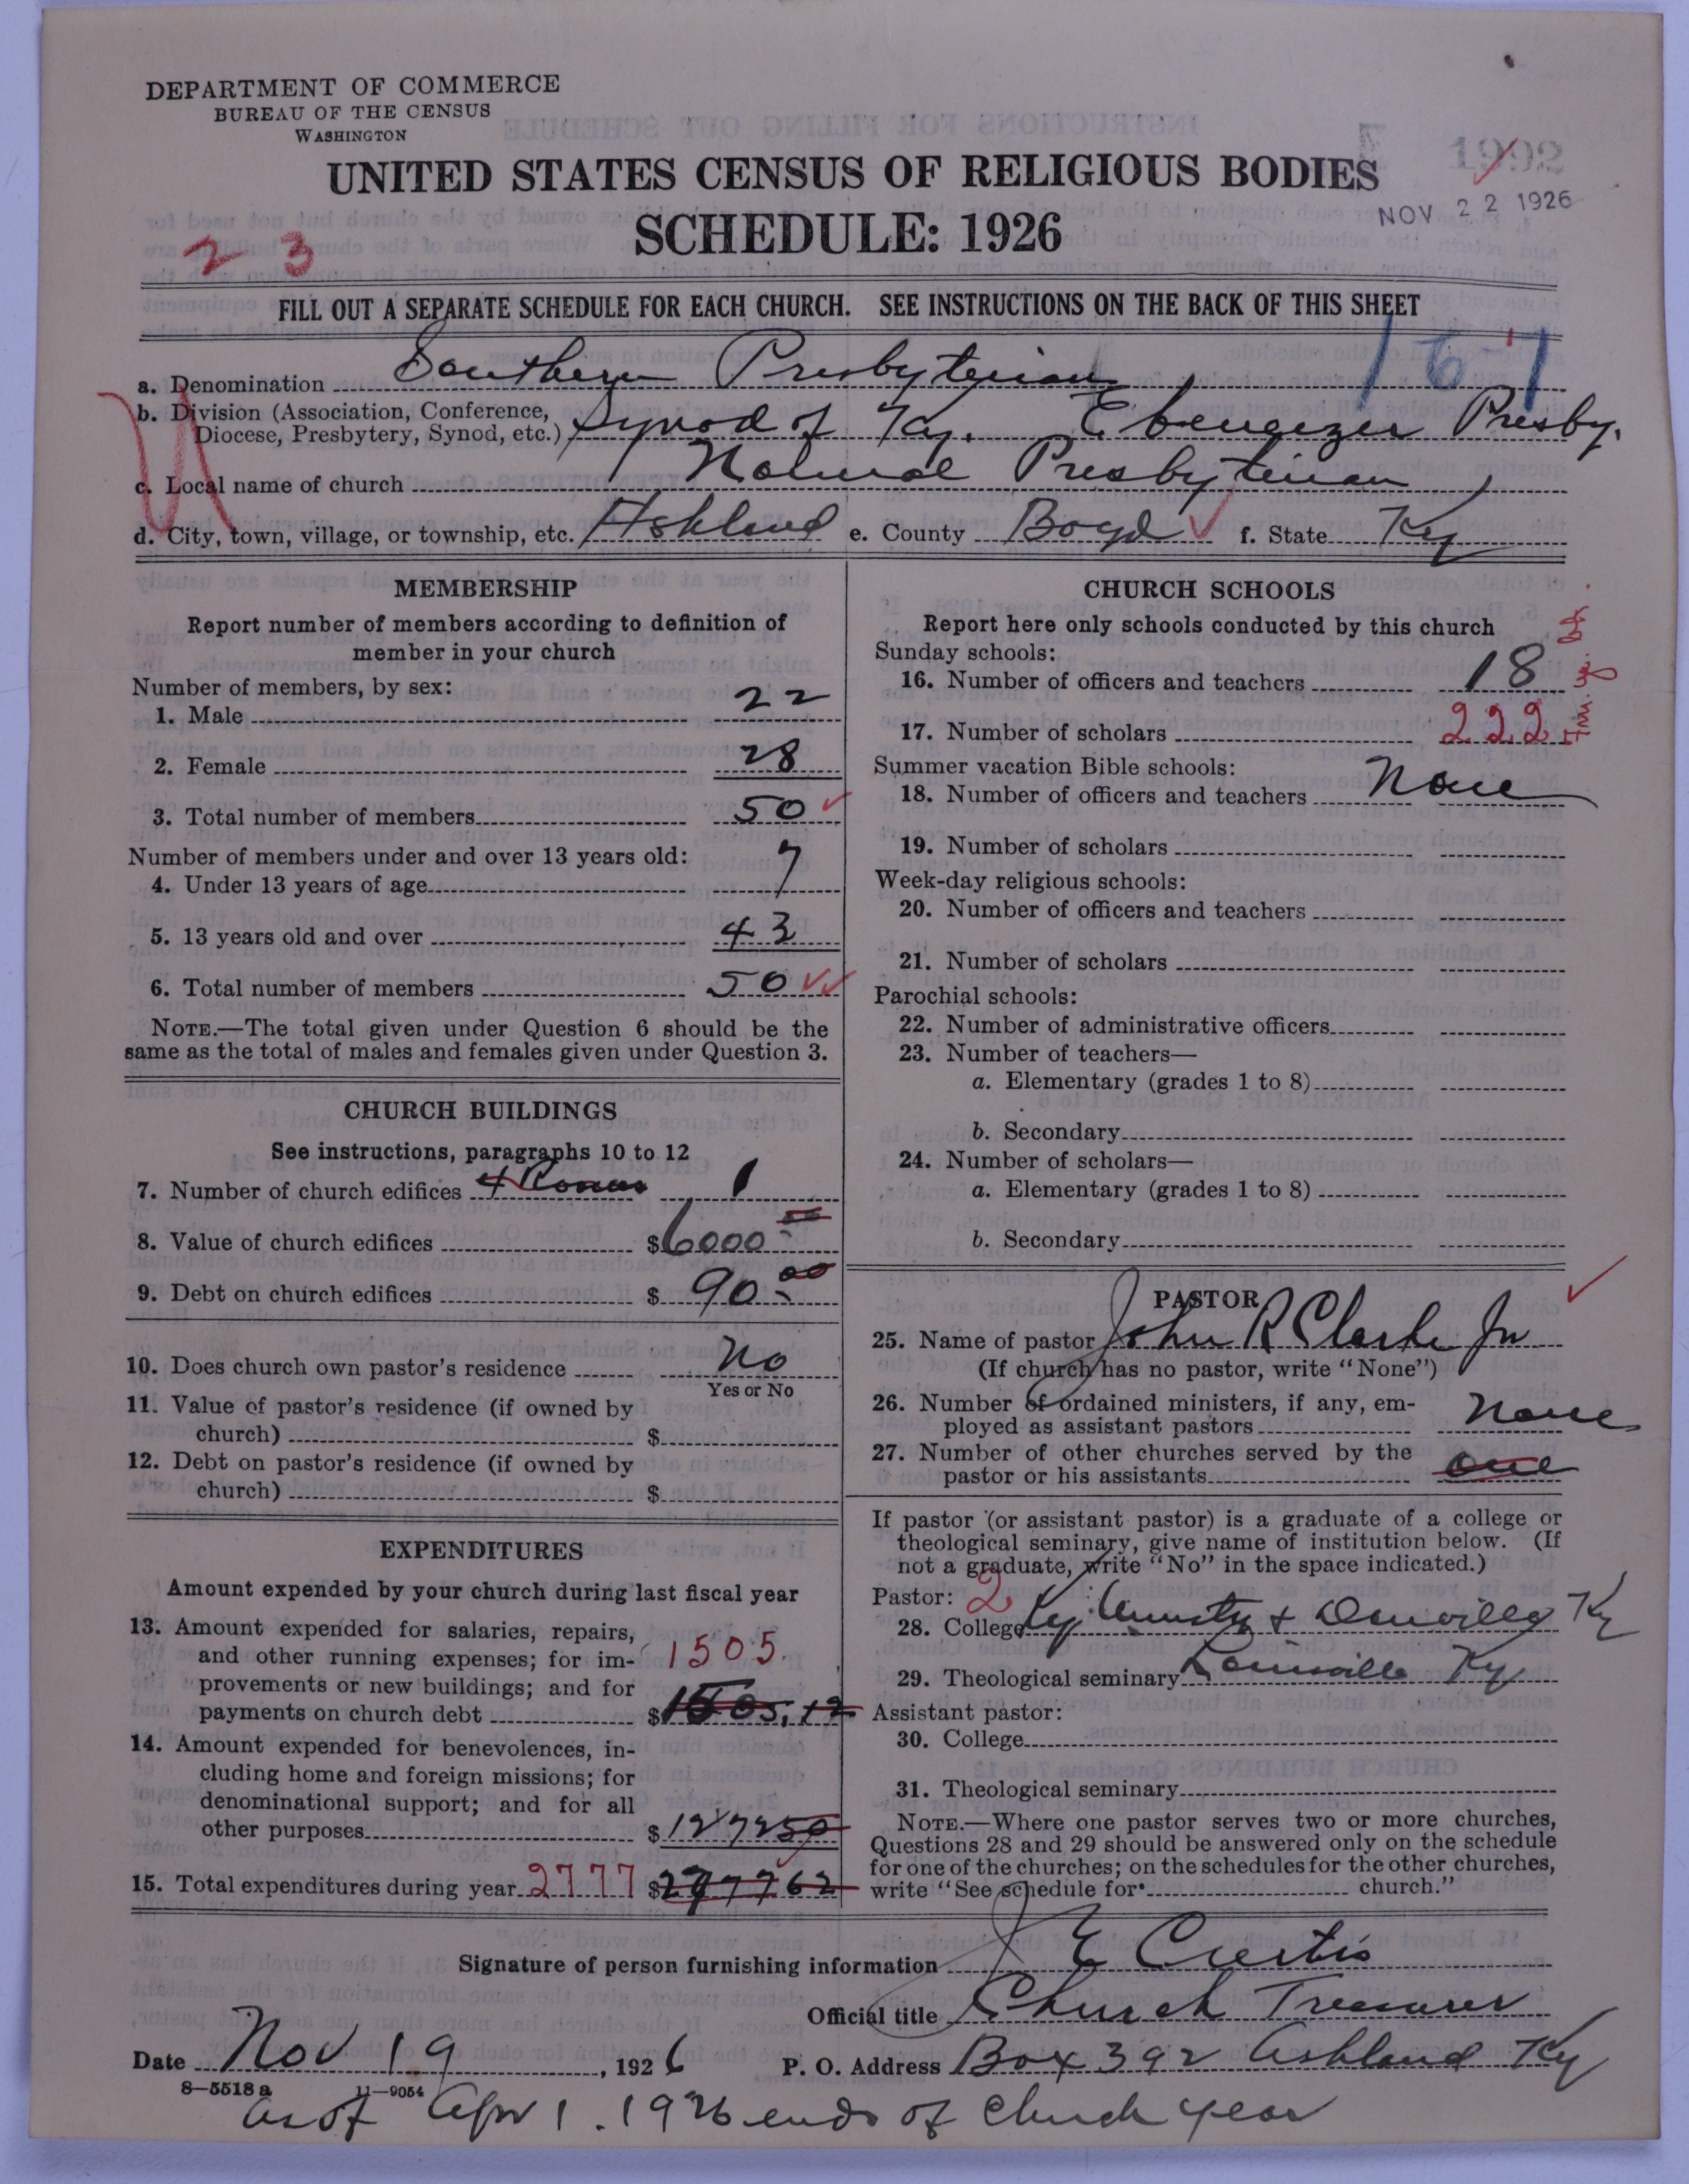 DEPARTMENT OF COMMERCE
BUREAU OF THE CENSUS
WASHINGTON
UNITED STATES CENSUS OF RELIGIOUS BODIES
SCHEDULE: 1926
1992
NOV 22 1926
2 3
FILL OUT A SEPARATE SCHEDULE FOR EACH CHURCH. SEE INSTRUCTIONS ON THE BACK OF THIS SHEET
167
a. Denomination Southern Presbyterian
b. Division (Association, Conference,
Diocese, Presbytery, Synod, etc.) Synod of Ky. Ebenezer Presby.
c. Local name of church Presbyterian
d. City, town, village, or township, etc. Ashland e. County Boyd f. State Ky
MEMBERSHIP
Report number of members according to definition of
member in your church
Number of members, by sex:
1. Male 22
2. Female 28
3. Total number of members 50
Number of members under and over 13 years old:
4. Under 13 years of age 7
5. 13 years old and over 43
6. Total number of members 50
NOTE.—The total given under Question 6 should be the
same as the total of males and females given under Question 3.
CHURCH BUILDINGS
See instructions, paragraphs 10 to 12
7. Number of church edifices 4 Rooms 1
8. Value of church edifices $6000 00
9. Debt on church edifices $ 90 00
10. Does church own pastor's residence No
Yes or No
11. Value of pastor's residence (if owned by
church) $
12. Debt on pastor's residence (if owned by
church) $
EXPENDITURES
Amount expended by your church during last fiscal year
13. Amount expended for salaries, repairs,
and other running expenses; for im- 1505.
provements or new buildings; and for
payments on church debt $1505.12
14. Amount expended for benevolences, in-
cluding home and foreign missions; for
denominational support; and for all
other purposes $127250
15. Total expenditures during year 2777 $277762
CHURCH SCHOOLS
Report here only schools conducted by this church
Sunday schools:
16. Number of officers and teachers 18
17. Number of scholars 222
Summer vacation Bible schools:
18. Number of officers and teachers None
19. Number of scholars
Week-day religious schools:
20. Number of officers and teachers
21. Number of scholars
Parochial schools:
22. Number of administrative officers
23. Number of teachers—
a. Elementary (grades 1 to 8)
b. Secondary
24. Number of scholars—
a. Elementary (grades 1 to 8)
b. Secondary
PASTOR
25. Name of pastor John R Clarke Jr
(If church has no pastor, write "None")
26. Number of ordained ministers, if any, em-
ployed as assistant pastors None
27. Number of other churches served by the
pastor or his assistants one
If pastor (or assistant pastor) is a graduate of a college or
theological seminary, give name of institution below. (If
not a graduate, write "No" in the space indicated.)
Pastor: 2
28. College Ky. & Danville Ky
29. Theological seminary Louisville Ky
Assistant pastor:
30. College
31. Theological seminary
NOTE.—Where one pastor serves two or more churches,
Questions 28 and 29 should be answered only on the schedule
for one of the churches; on the schedules for the other churches,
write "See schedule for church."
Signature of person furnishing information J E Curtis
Official title Church Treasurer
Date Nov 19, 1926 P. O. Address Box 392 Ashland Ky
8—5518a 11—9054
as of Apr 1. 1926 ends of church year